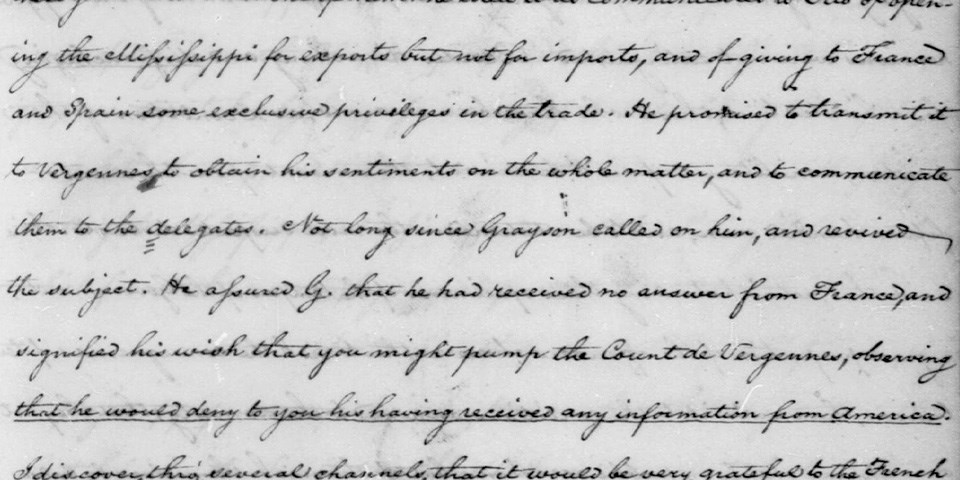 ing the Mississippi for exports but not for imports, and of giving to France
and Spain some exclusive privileges in the trade. He promised to transmit it
to Vergennes, to obtain his sentiments on the whole matter, and to communicate
them to the delegates. Not long since Grayson called on him, and revived
the subject. He assured G. that he had received no answer from France, and
signified his wish that you might pump the Count de Vergennes, observing
that he would deny to you his having received any information from America.
I discover, thro' several channels, that it would be very grateful to the French